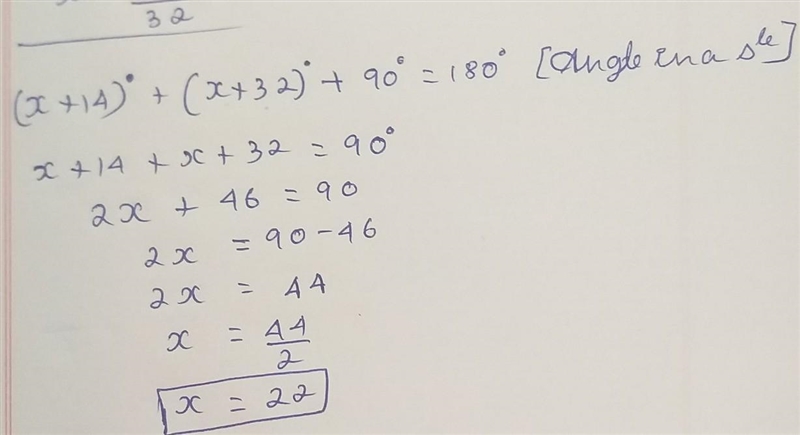 32
(x+14)° + (x+32)° + 90° = 180° [Angle in a Δle]
x+14 + x+32 = 90°
2x + 46 = 90
2x = 90-46
2x = 44
x = 44/2
x = 22